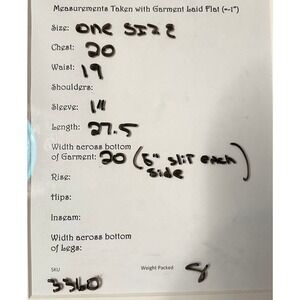 Measurements Taken with Garment Laid Flat (~1")
Size: one SIZE
Chest: 20
Waist: 19
Shoulders:
Sleeve: 1"
Length: 27.5
Width across bottom
of Garment: 20 (6" slit each
side)
Rise:
Hips:
Inseam:
Width across bottom
of Legs:
SKU Weight Packed 8
3360